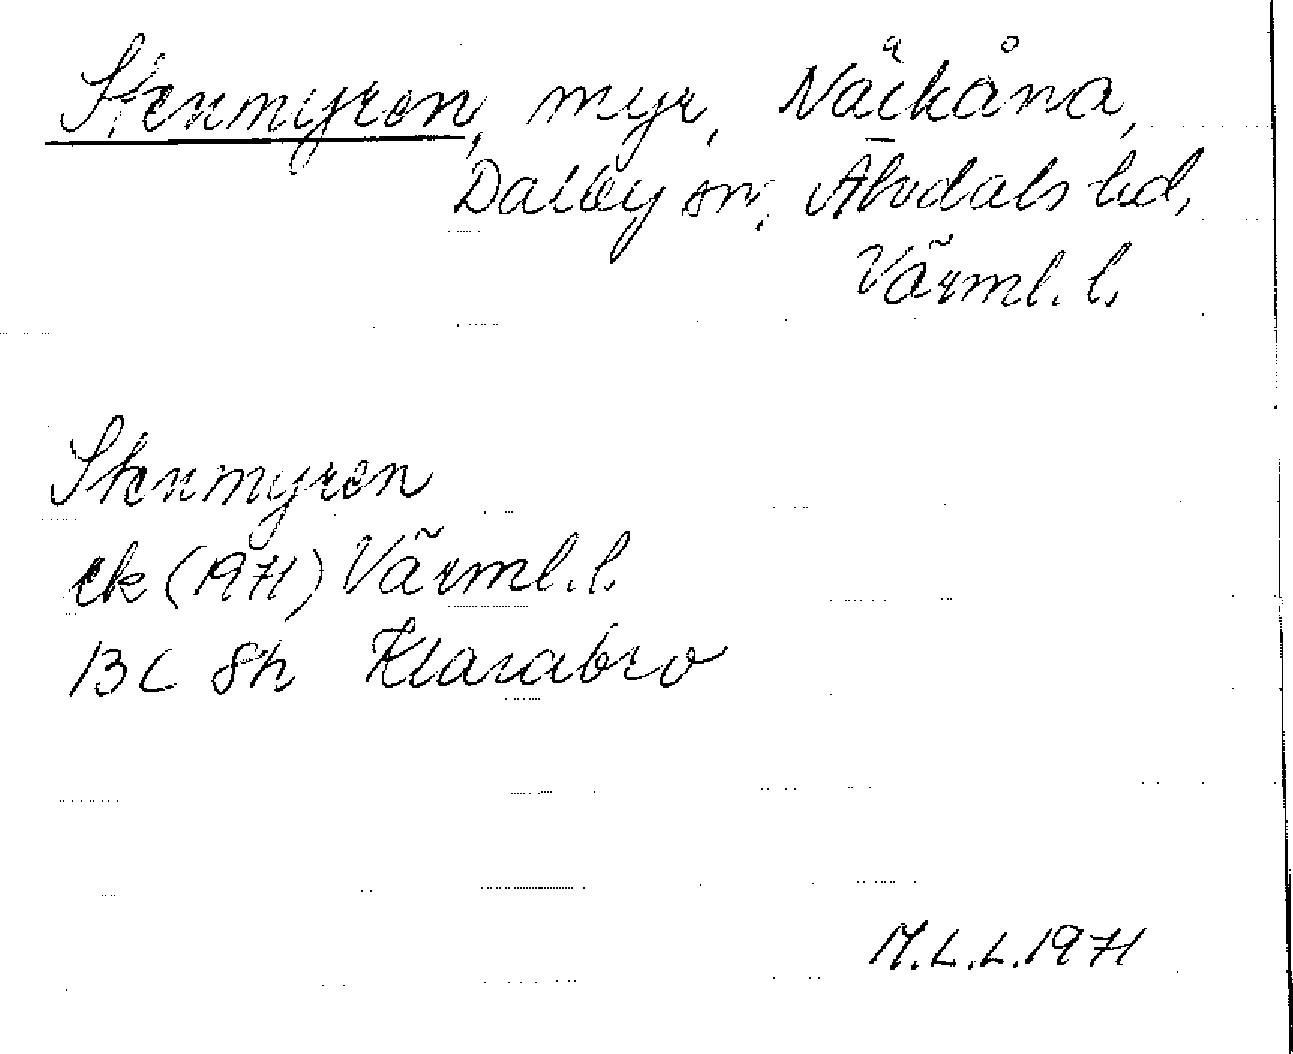 Stenmyren, myr, Näckåna,
Dalby sn, Älvdals hd,
Värml. l.
Stenmyren
ek (1971) Värml. l.
13 C 8h Klarabro
M.L.L. 1971